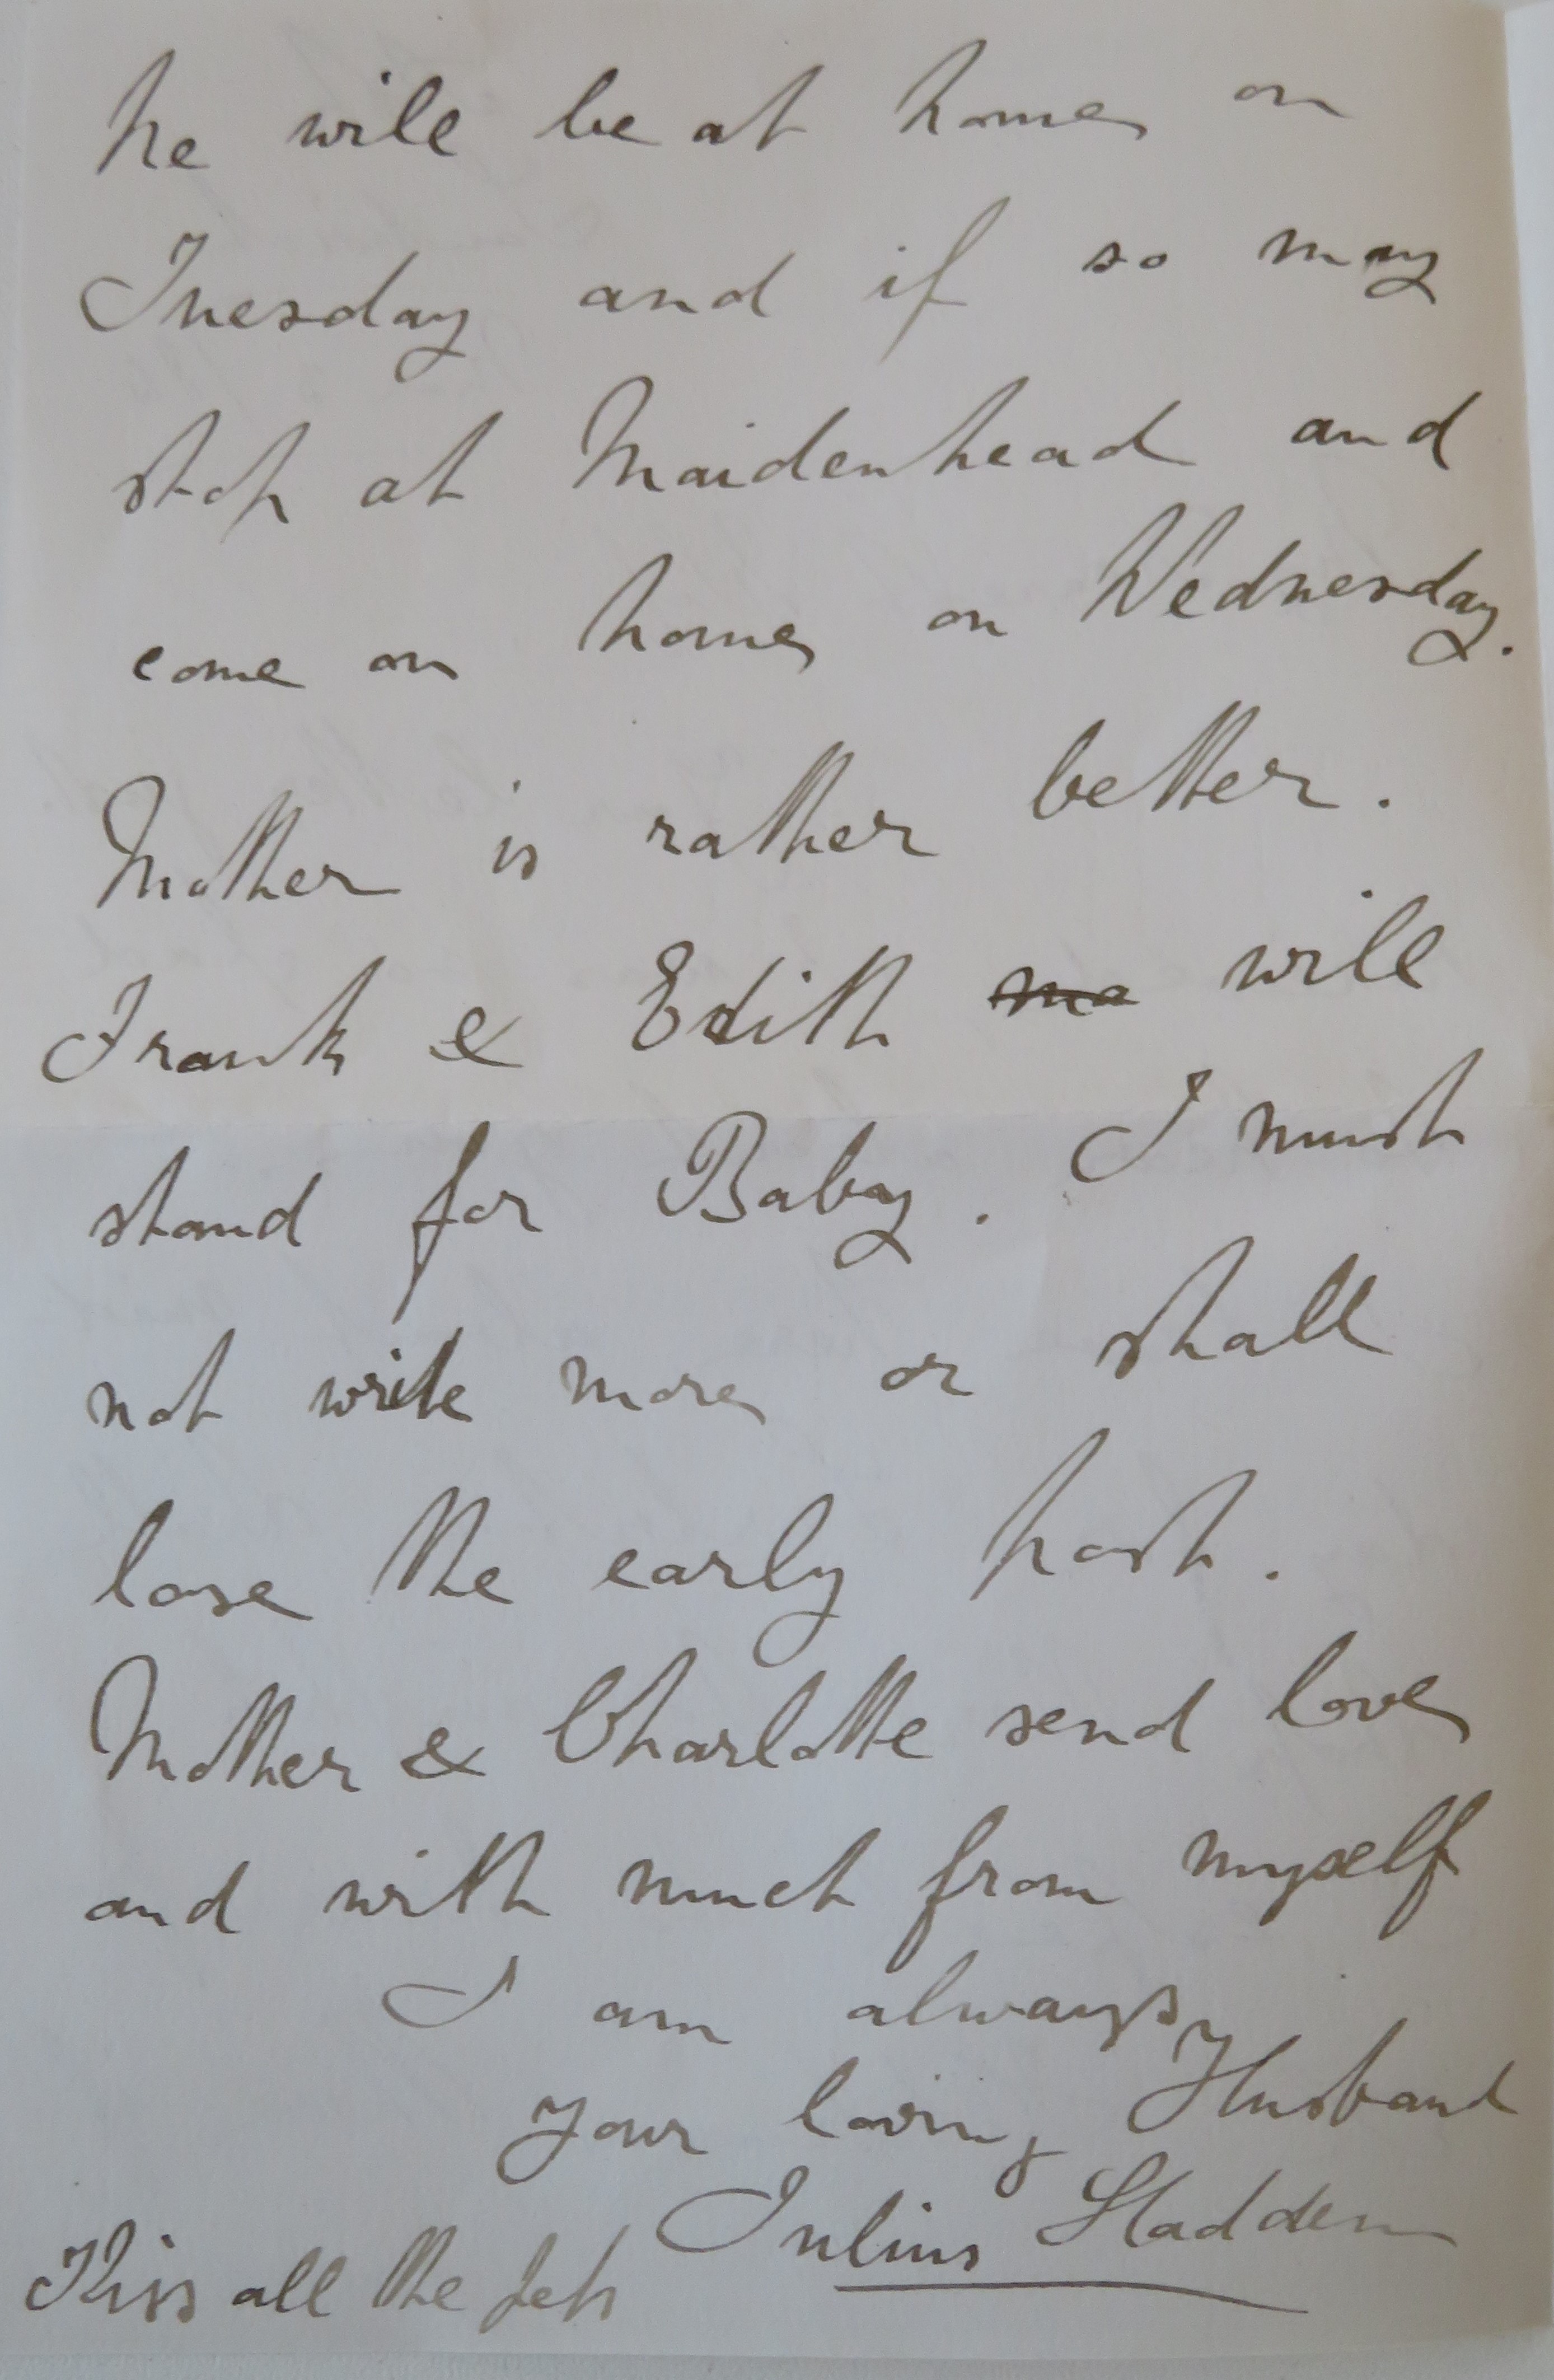 he will be at home on
Tuesday and if so may
stop at Maidenhead and
come on home on Wednesday.
Mother is rather better.
Frank & Edith ma will
stand for Baby. I must
not write more or shall
lose the early post.
Mother & Charlotte send love
and with much from myself
I am always
Your loving Husband
Julius Sladden
Kiss all the pets